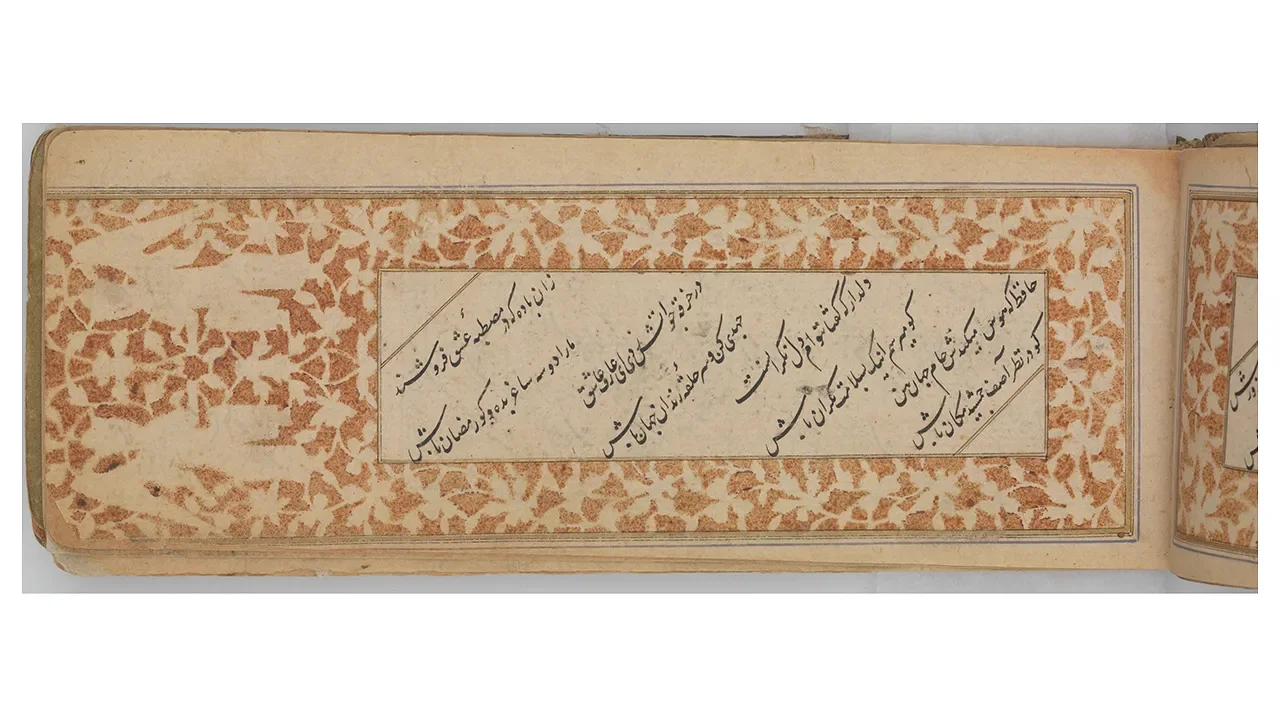 زان باده که در مصطبهٔ عشق فروشند
ما را دو سه ساغر بده و کو رمضان باش
در خرقه چو آتش زدی ای عارف عاشق
جهدی کن و سر حلقهٔ رندان جهان باش
دلدار که گفتا بتوام دل نگرانست
کو میرسم اینک بسلامت نگران باش
حافظ که هوس میکندش جام جهان بین
کو در نظر آصف جمشید مکان باش